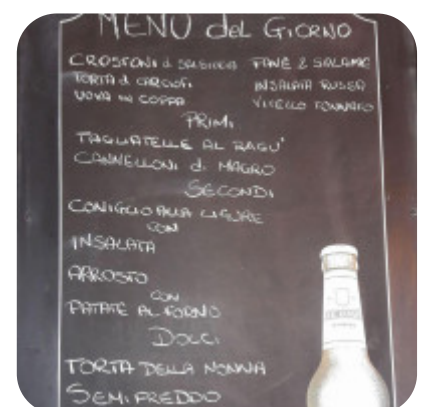 MENÙ del GIORNO
CROSTONI di SALSICCIA PANE & SALAME
TORTA di CARCIOFI INSALATA RUSSA
UOVA IN COPPA VITELLO TONNATO
PRIMI
TAGLIATELLE AL RAGU'
CANNELLONI di MAGRO
SECONDI
CONIGLIO ALLA LIGURE
CON
INSALATA
ARROSTO
CON
PATATE AL FORNO
DOLCI
TORTA DELLA NONNA
SEMIFREDDO